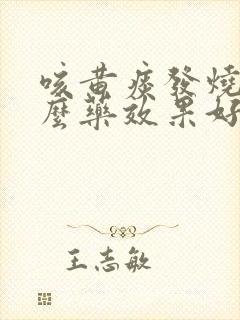 咳黄痰發燒
麼藥效果好
王志敏